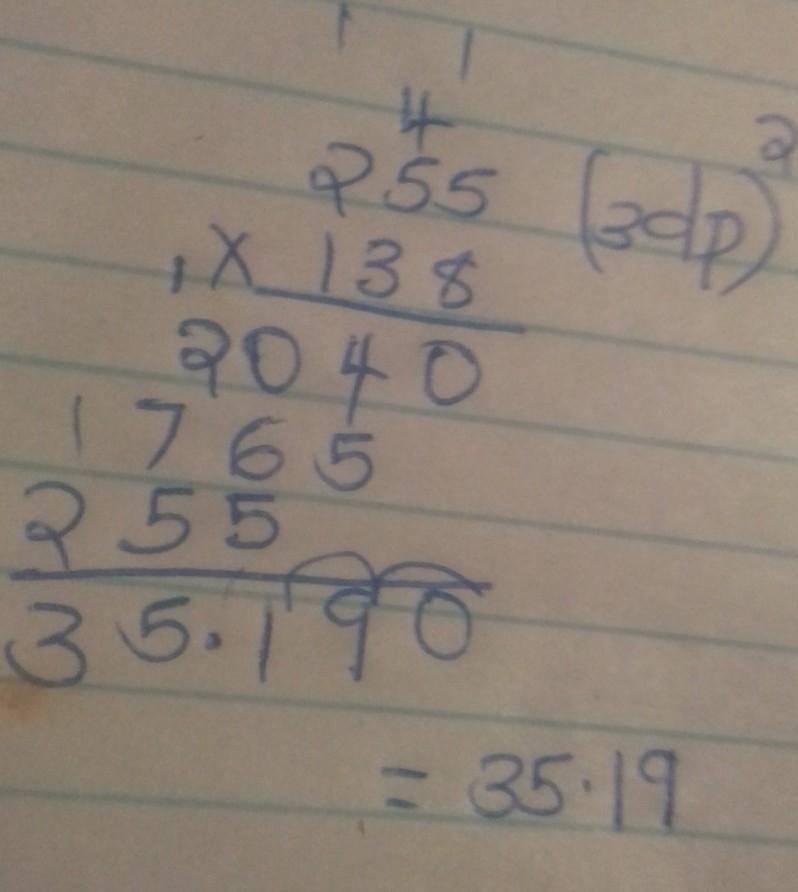 1 1
4
255 (3dp)²
, x 138
2040
1765
255
35.190
= 35.19